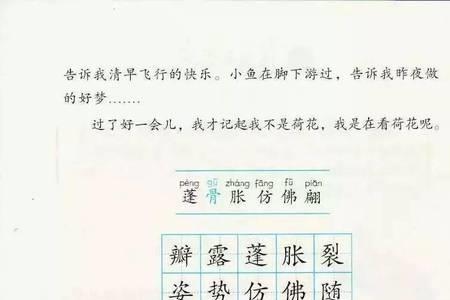 告诉我清早飞行的快乐。小鱼在脚下游过，告诉我昨夜做
的好梦……
过了好一会儿，我才记起我不是荷花，我是在看荷花呢。
péng gū zhàng fǎng fú piān
蓬 骨 胀 仿 佛 翩
瓣 露 蓬 胀 裂
姿 势 仿 佛 随